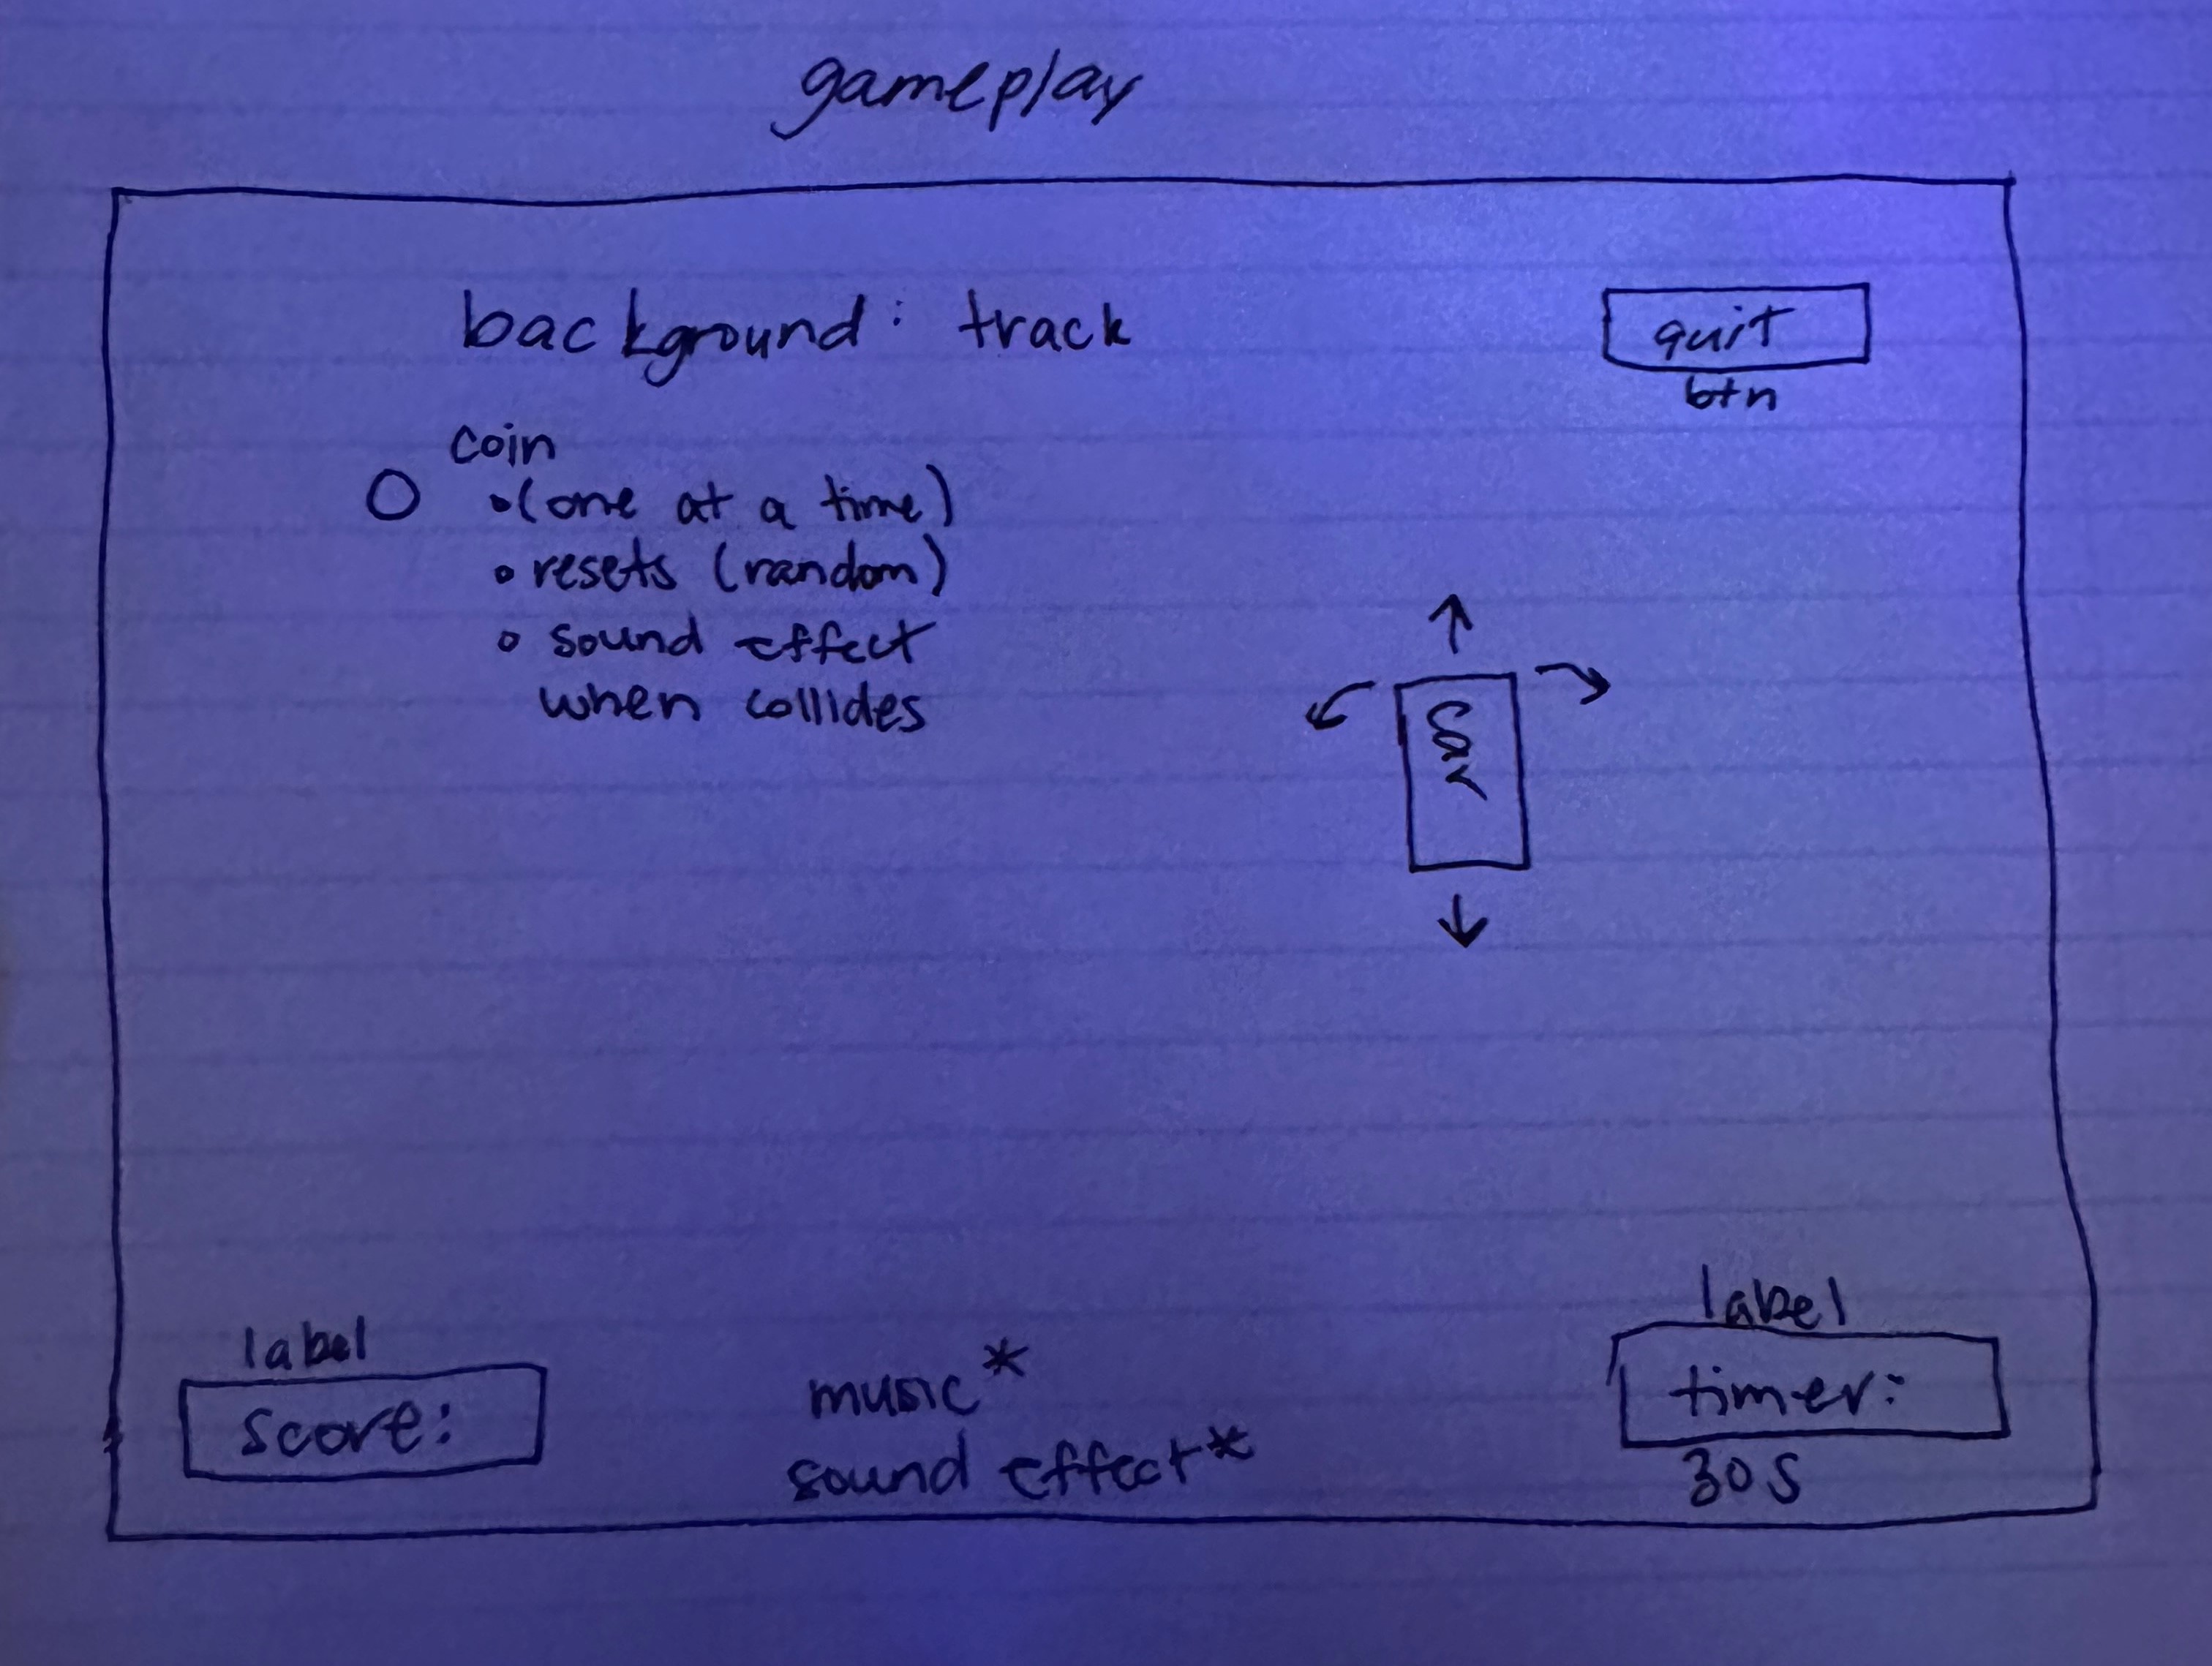 gameplay
background: track
quit
btn
coin
(one at a time)
resets (random)
sound effect
when collides
label
score:
music*
sound effect*
label
timer:
30s